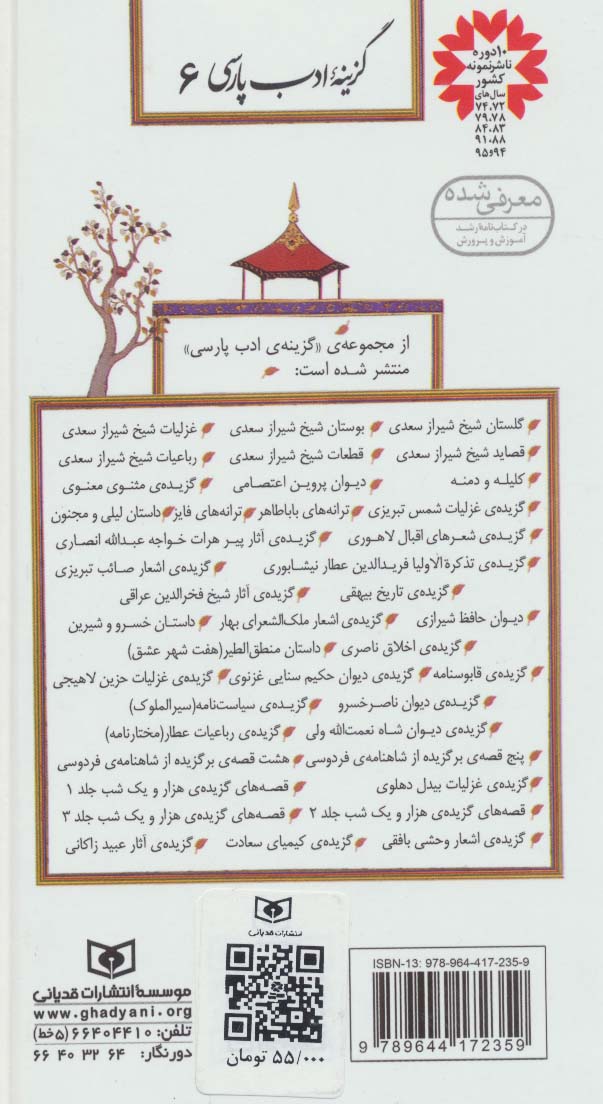 گزینهٔ ادب پارسی ۶
۱۰دوره
ناشرنمونه
کشور
سال‌های
۷۴،۷۲
۷۹،۷۸
۸۴،۸۳
۹۱،۸۸
۹۴و۹۵
معرفی شده
در کتاب‌نامهٔ رشد
آموزش و پرورش
از مجموعه‌ی «گزینه‌ی ادب پارسی»
منتشر شده است:
گلستان شیخ شیراز سعدی بوستان شیخ شیراز سعدی غزلیات شیخ شیراز سعدی
قصاید شیخ شیراز سعدی قطعات شیخ شیراز سعدی رباعیات شیخ شیراز سعدی
کلیله و دمنه دیوان پروین اعتصامی گزیده‌ی مثنوی معنوی
گزیده‌ی غزلیات شمس تبریزی ترانه‌های باباطاهر ترانه‌های فایز داستان لیلی و مجنون
گزیده‌ی شعرهای اقبال لاهوری گزیده‌ی آثار پیر هرات خواجه عبدالله انصاری
گزیده‌ی تذکرة‌الاولیا فریدالدین عطار نیشابوری گزیده‌ی اشعار صائب تبریزی
گزیده‌ی تاریخ بیهقی گزیده‌ی آثار شیخ فخرالدین عراقی
دیوان حافظ شیرازی گزیده‌ی اشعار ملک‌الشعرای بهار داستان خسرو و شیرین
گزیده‌ی اخلاق ناصری داستان منطق‌الطیر(هفت شهر عشق)
گزیده‌ی قابوسنامه گزیده‌ی دیوان حکیم سنایی غزنوی گزیده‌ی غزلیات حزین لاهیجی
گزیده‌ی دیوان ناصرخسرو گزیده‌ی سیاست‌نامه(سیرالملوک)
گزیده‌ی دیوان شاه نعمت‌الله ولی گزیده‌ی رباعیات عطار(مختارنامه)
پنج قصه‌ی برگزیده از شاهنامه‌ی فردوسی هشت قصه‌ی برگزیده از شاهنامه‌ی فردوسی
گزیده‌ی غزلیات بیدل دهلوی قصه‌های گزیده‌ی هزار و یک شب جلد ۱
قصه‌های گزیده‌ی هزار و یک شب جلد ۲ قصه‌های گزیده‌ی هزار و یک شب جلد ۳
گزیده‌ی اشعار وحشی بافقی گزیده‌ی کیمیای سعادت گزیده‌ی آثار عبید زاکانی
موسسهٔ انتشارات قدیانی
www.ghadyani.org
تلفن: ۶۶۴۰۴۴۱۰ (۵خط)
دورنگار: ۶۶۴۰۳۲۶۴
انتشارات قدیانی
۵۵/۰۰۰ تومان
ISBN-13: 978-964-417-235-9
9 789644 172359